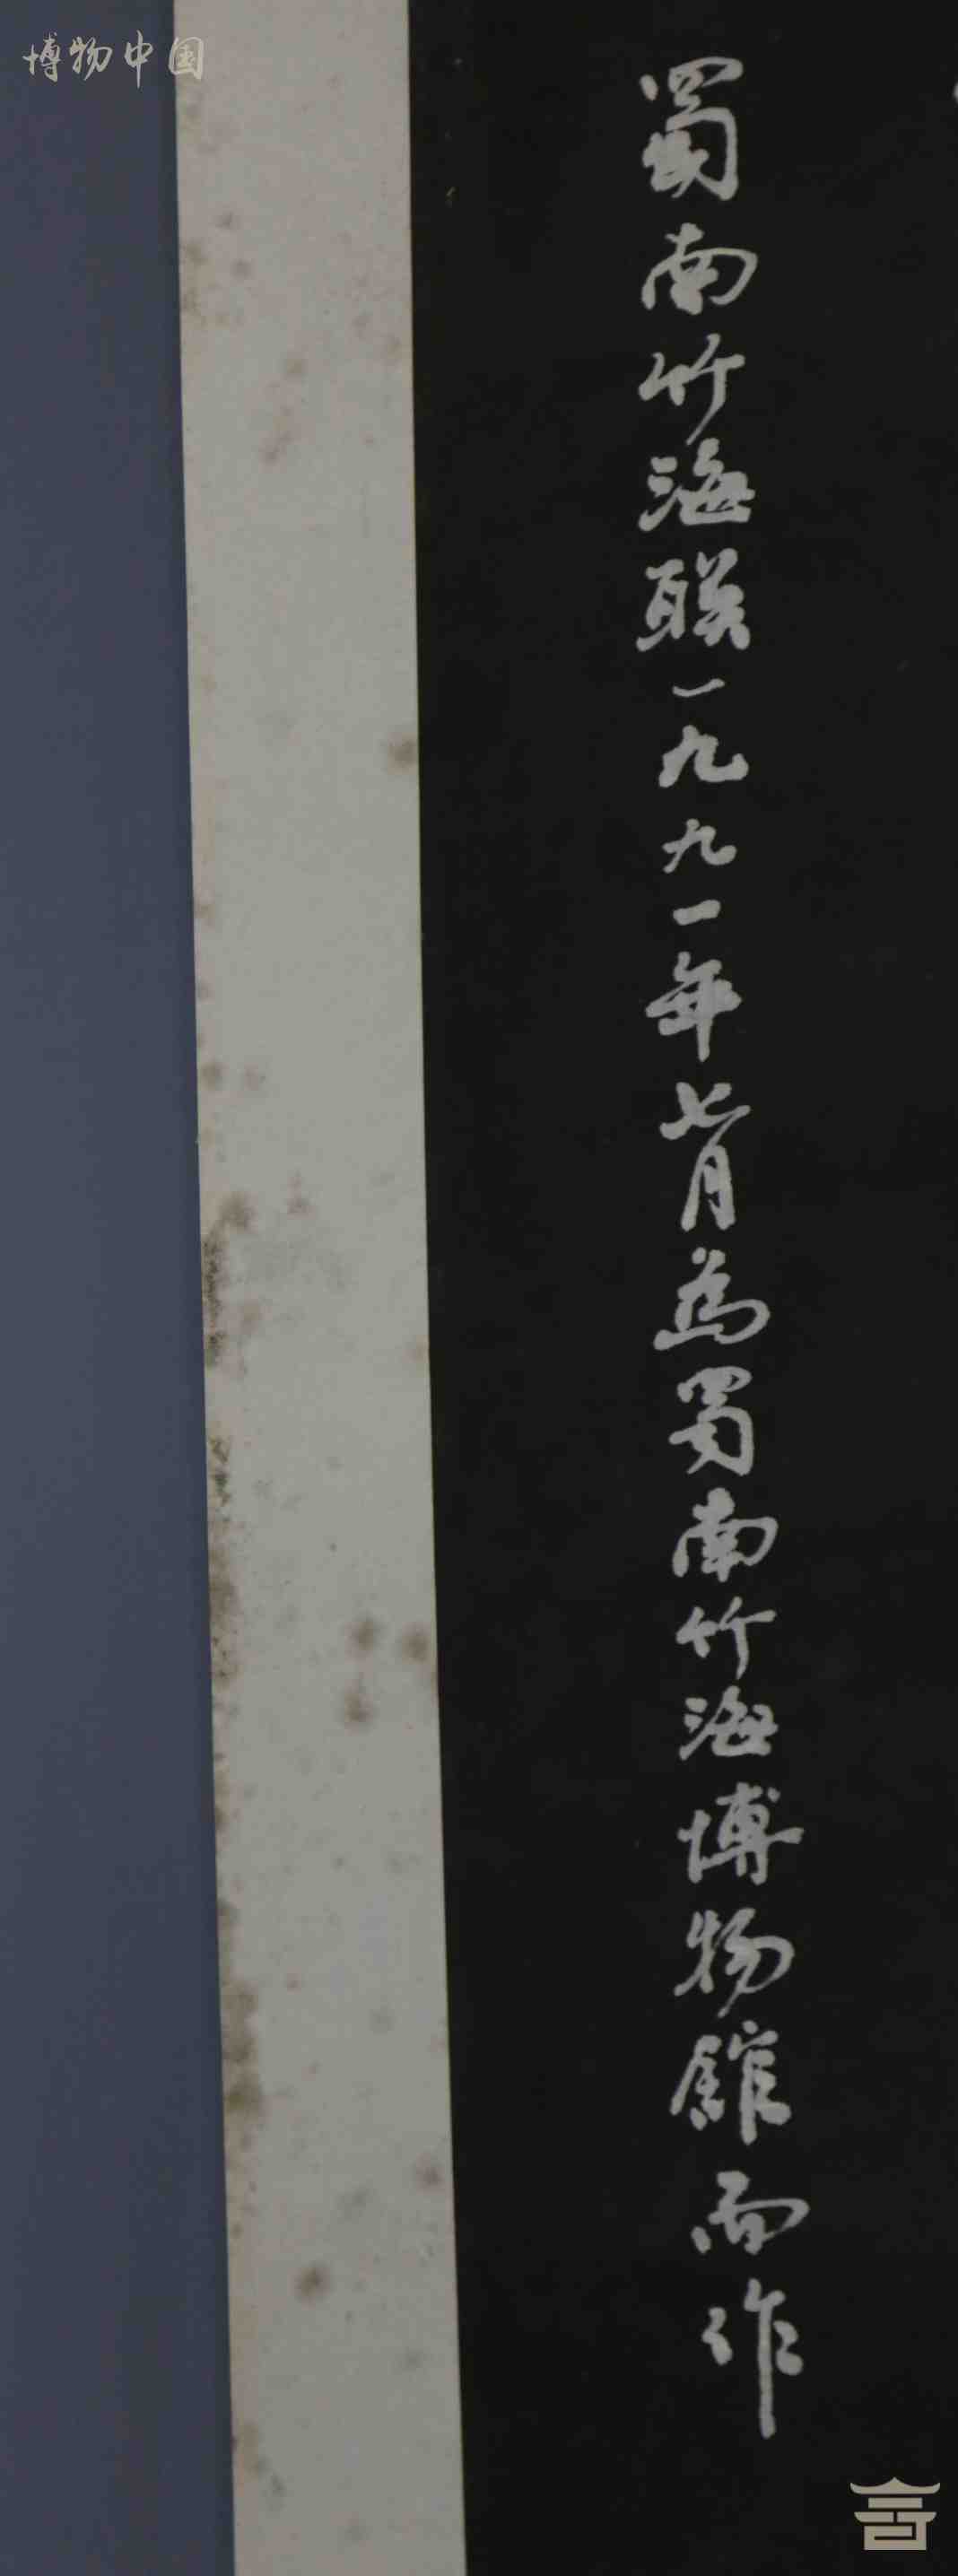 博物中国
蜀南竹海联一九九一年七月為蜀南竹海博物館而作